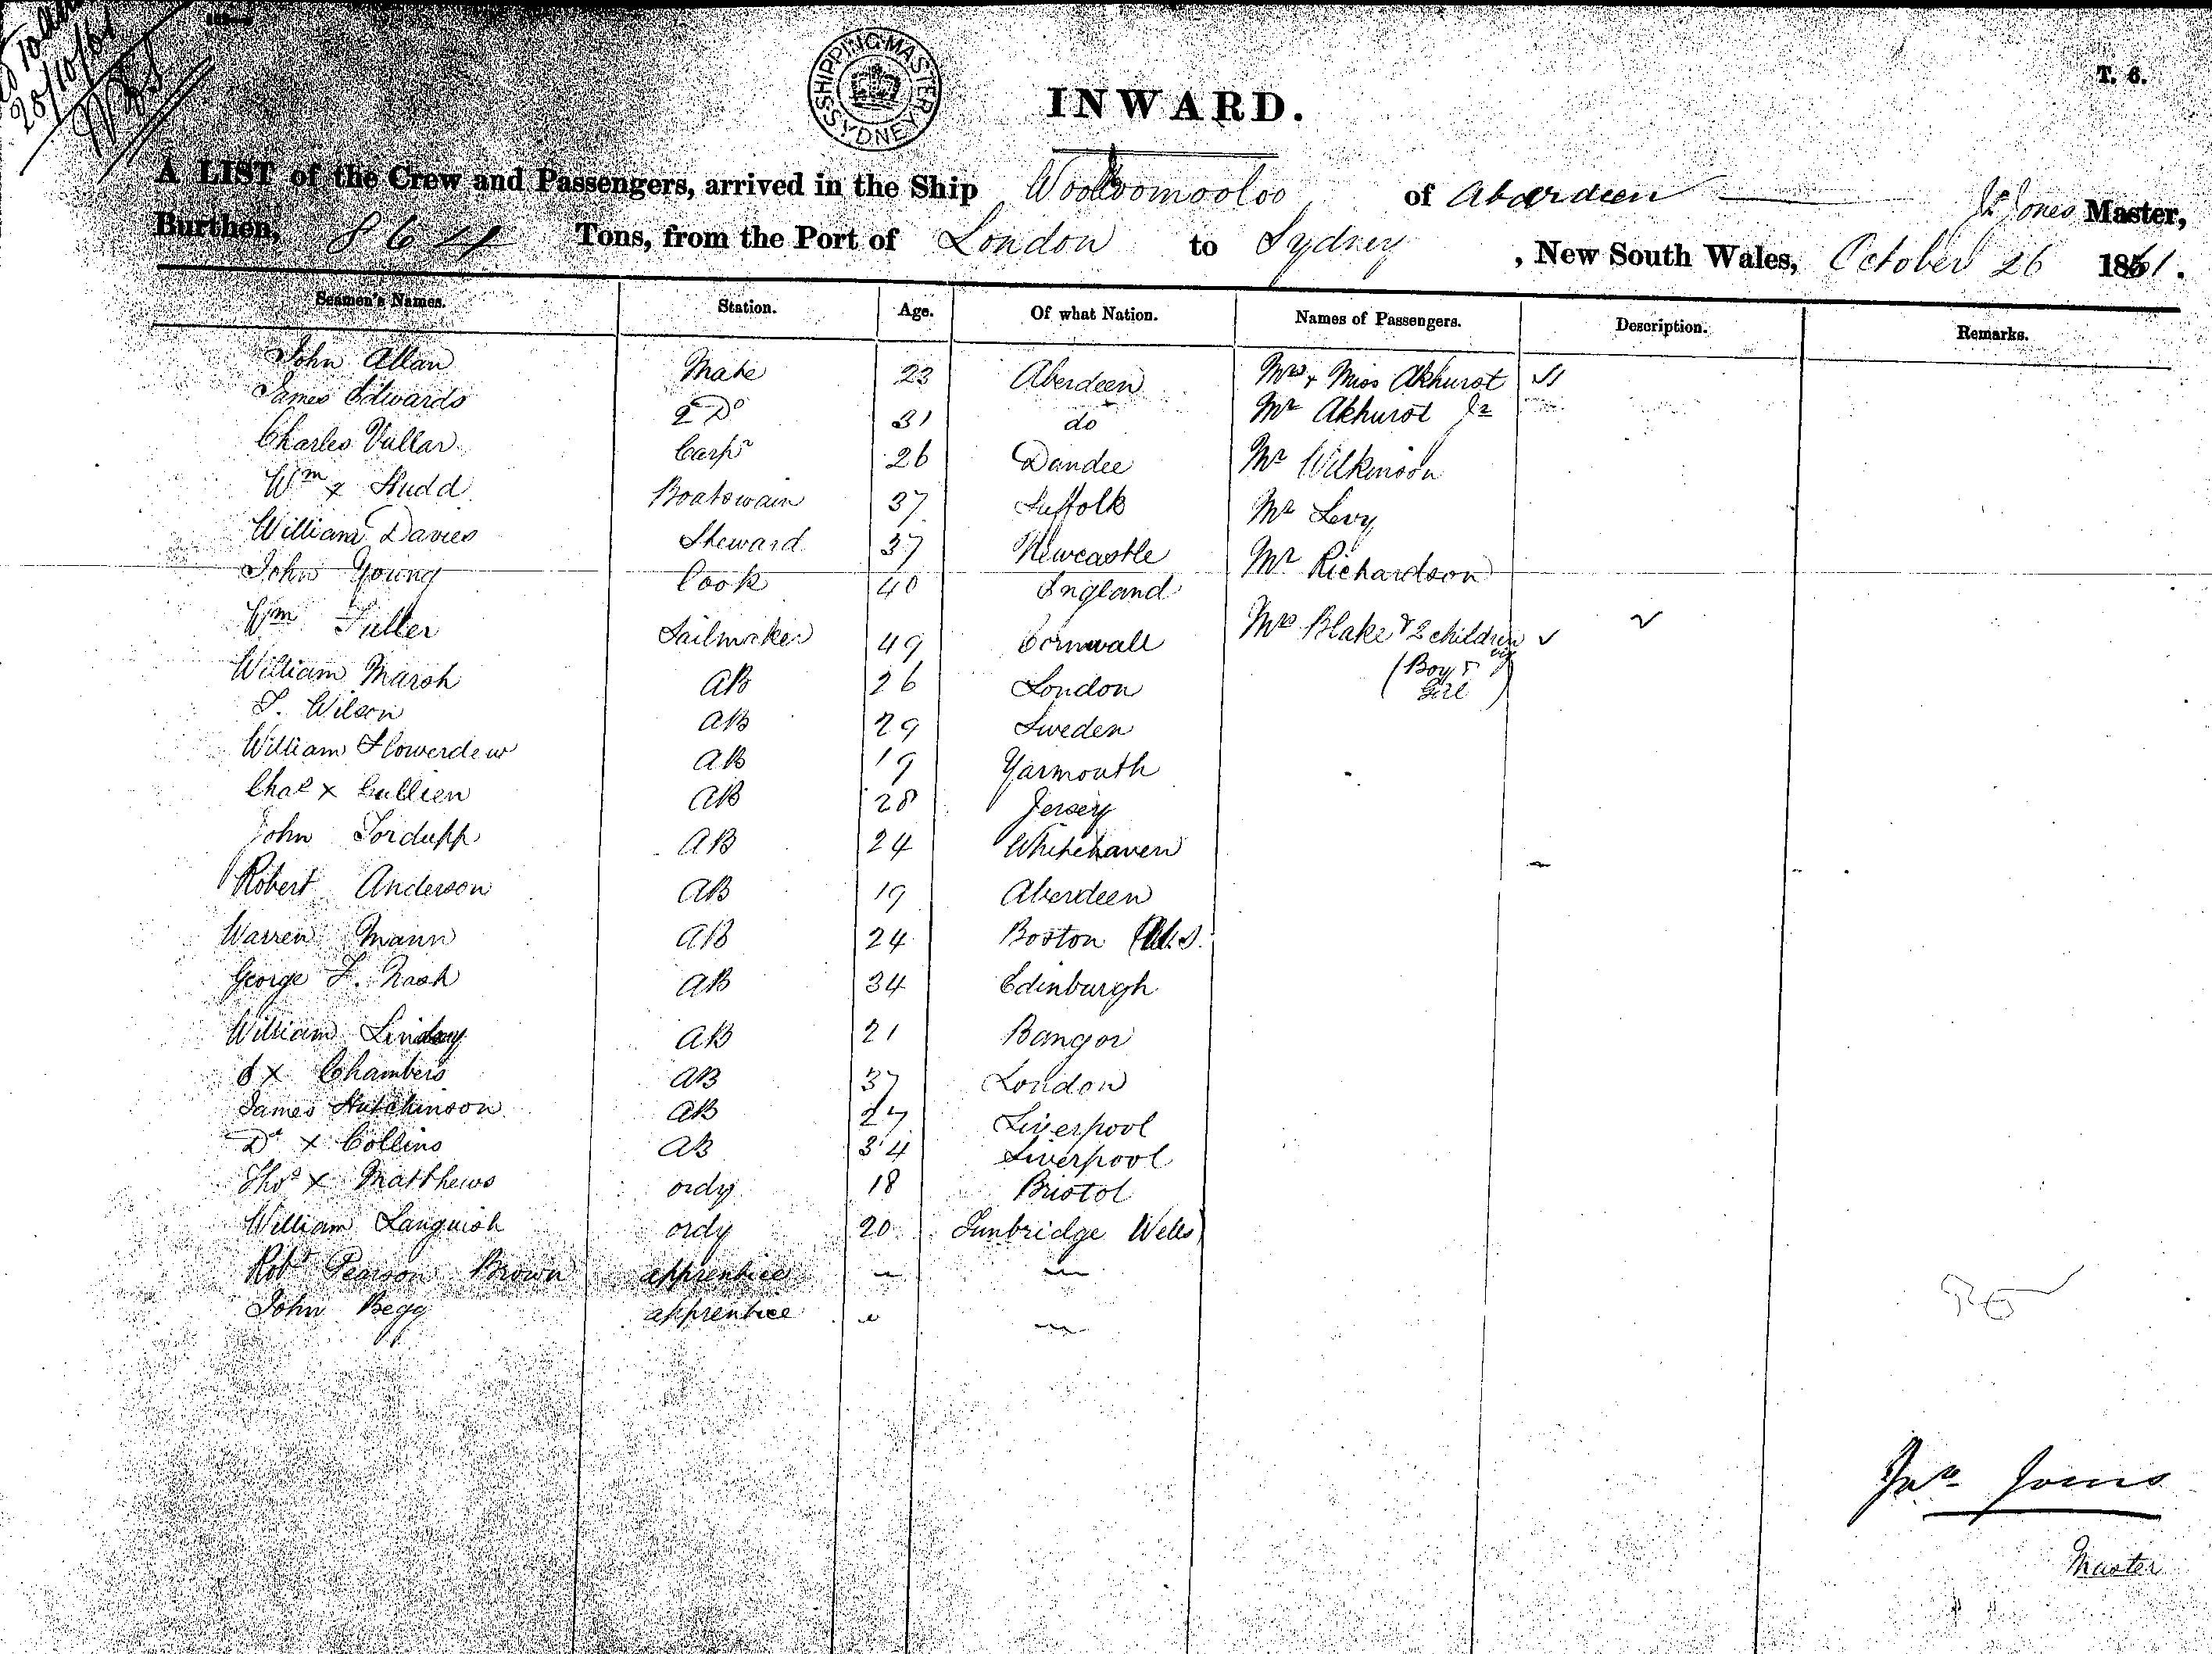 28/10/61
SHIPPING MASTER SYDNEY
INWARD.
T. 6.
A LIST of the Crew and Passengers, arrived in the Ship Woolloomooloo of Aberdeen Jno Jones Master,
Burthen, 864 Tons, from the Port of London to Sydney, New South Wales, October 26 1861.
Seamen's Names. Station. Age. Of what Nation. Names of Passengers. Description. Remarks.
John Allan Mate 23 Aberdeen Mrs & Miss Akhurst
James Edwards 2 Do 31 do Mr Akhurst Jr
Charles Vullar Carpr 26 Dundee Mr Wilkinson
Wm x Studd Boatswain 37 Suffolk Mr Levy
William Davies Steward 37 Newcastle Mr Richardson
John Young Cook 40 England
Wm Fuller Sailmaker 49 Cornwall Mrs Blake & 2 children viz
(Boy & Girl)
William Marsh AB 26 London
S. Wilson AB 29 Sweden
William Flowerdew AB 19 Yarmouth
Chas x Gullien AB 28 Jersey
John Tordupp AB 24 Whitehaven
Robert Anderson AB 19 Aberdeen
Warren Mann AB 24 Boston U.S.
George F. Nash AB 34 Edinburgh
William Lindsay AB 21 Bangor
J x Chambers AB 37 London
James Hutchinson AB 27 Liverpool
Dl x Collins AB 34 Liverpool
Thos x Matthews ordy 18 Bristol
William Languish ordy 20 Tunbridge Wells
Robt Pearson Brown apprentice — —
John Begg apprentice — —
Jno Jones
Master